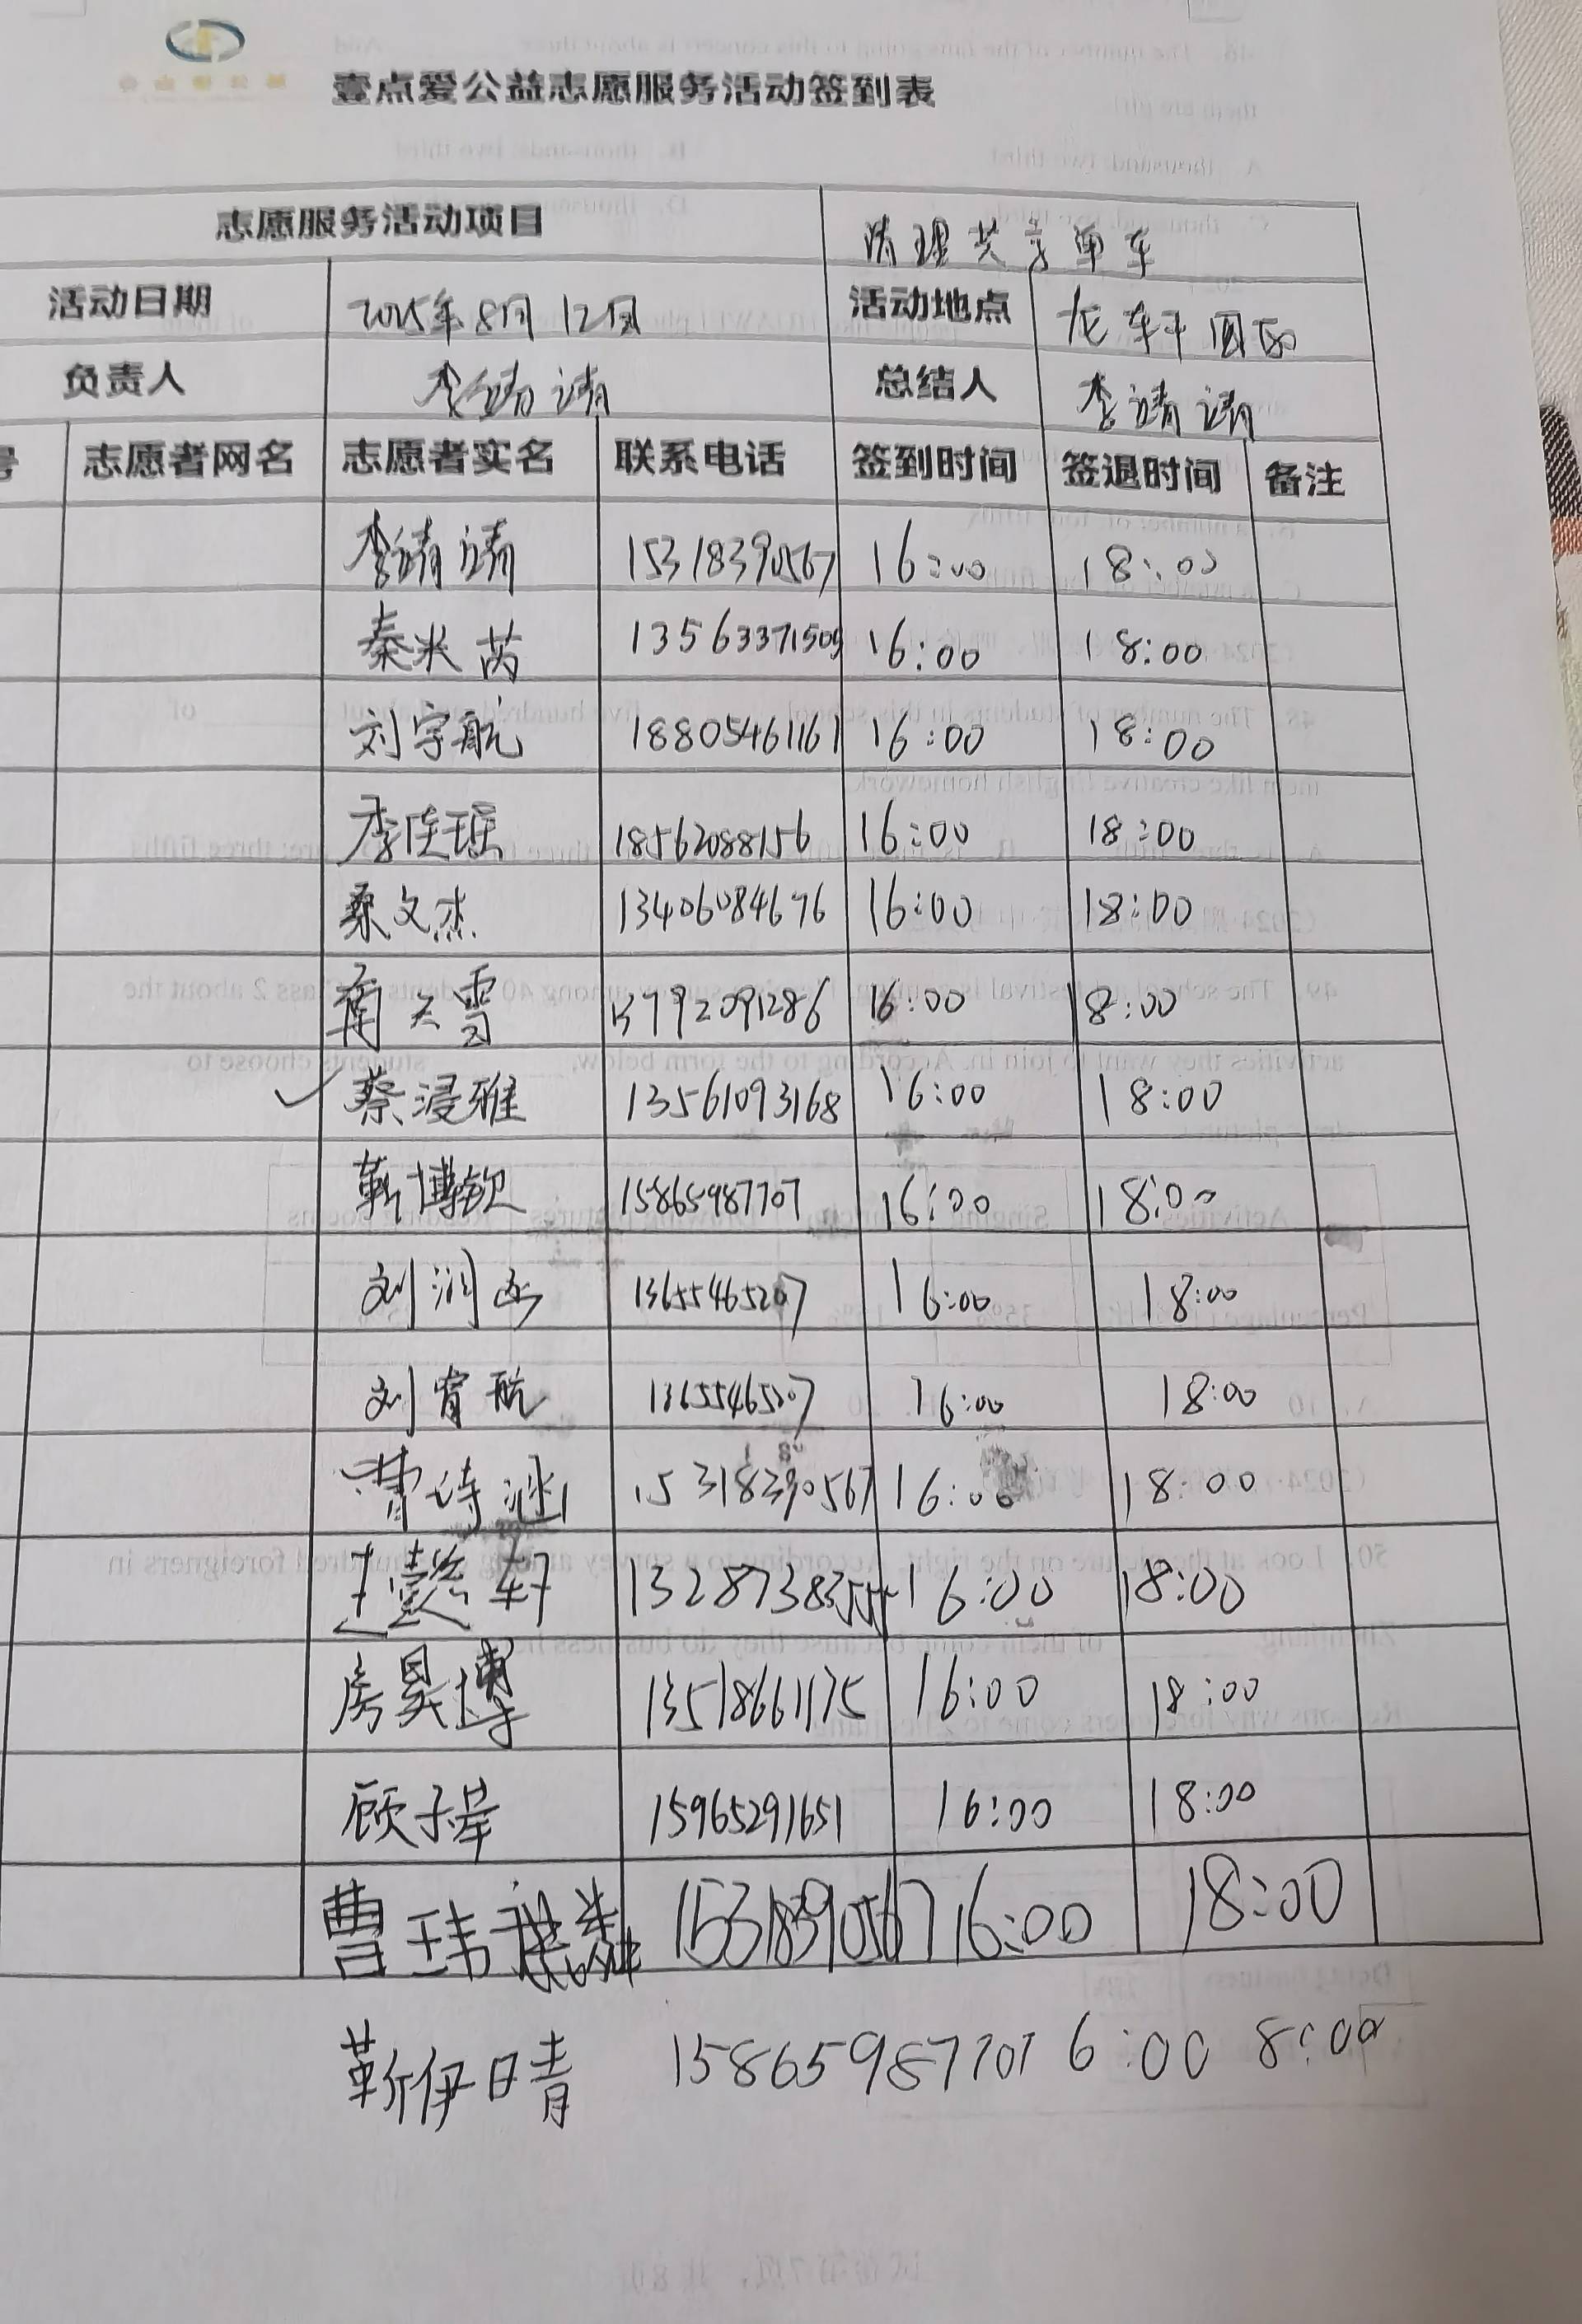 壹点爱公益志愿服务活动签到表
志愿服务活动项目 清理共享单车
活动日期 2025年8月12日 活动地点
负责人 李靖靖 总结人 李靖靖
志愿者网名 志愿者实名 联系电话 签到时间 签退时间 备注
李靖靖 15318390567 16:00 18:00
秦米芮 13563371509 16:00 18:00
刘宇航 18805461161 16:00 18:00
李佳瑶 18562088156 16:00 18:00
桑文杰 13406084676 16:00 18:00
16:00 18:00
蔡浸雅 13561093168 16:00 18:00
靳博钦 15865987707 16:00 18:00
刘润 13655465207 16:00 18:00
刘宥航 13655465207 16:00 18:00
曹诗 15318390567 16:00 18:00
王懿轩 16:00 18:00
房昊博 13518661175 16:00 18:00
顾子 15965291651 16:00 18:00
曹玮 15318390567 16:00 18:00
靳伊晴 15865987707 6:00 8:00